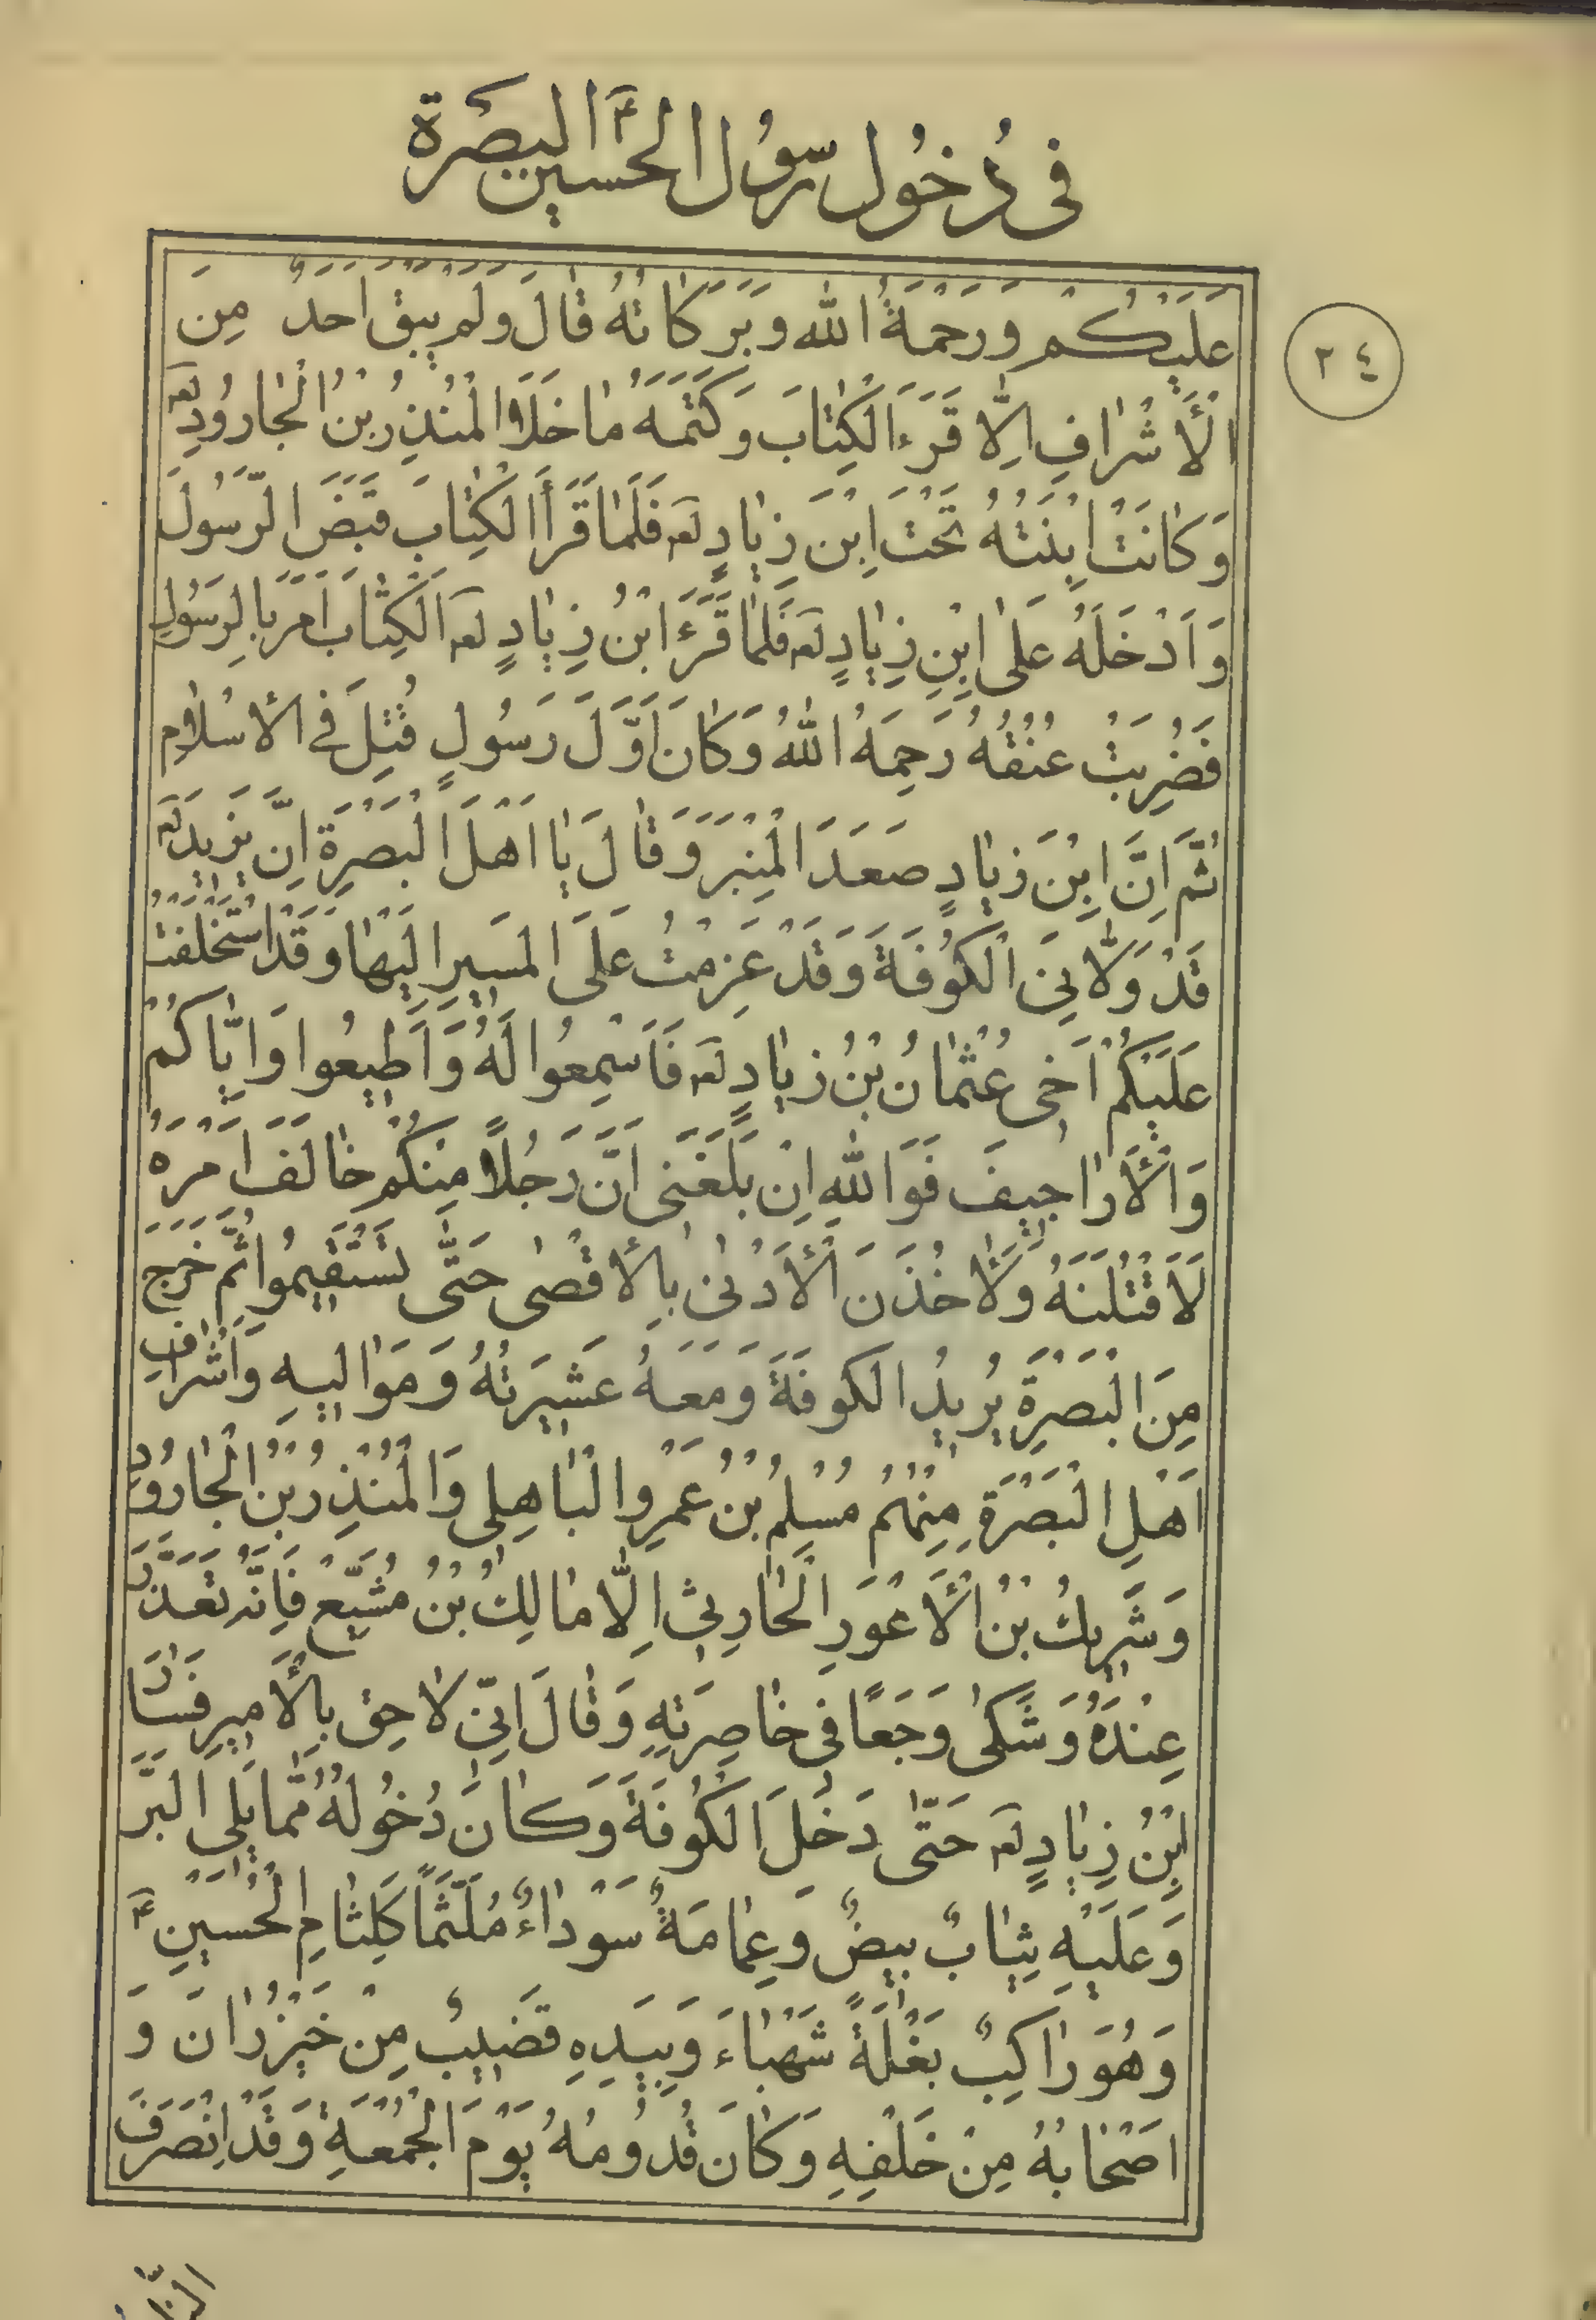 فى دُخُول رسوُل الحسين ع البصَرة
٣٤
عَلَيْكُم وَرَحْمَةُ الله وَبَرَكاتُهُ قالَ وَلَم يَبق اَحَدٌ مِنَ
الْأَشْرافِ اِلّا قَرَءَ الكِتابَ وَكَتَمَهُ ما خَلَا المُنْذِرِ بْنُ الْجارُودِ لعه
وَكانَتْ اِبْنَتُهُ تَحْتَ اِبْن زِيادٍ لعه فَلَمّا قَرَأَ الكِتابَ قَبَضَ الرَّسُولَ
وَاَدْخَلَهُ عَلى ابْنِ زِيادٍ لعه فَلَمّا قَرَءَ ابْنُ زِيادٍ لعه الكِتابَ اَمَرَ بِالرَسُولِ
فَضُرِبَتْ عُنُقُهُ رَحِمَهُ اللهُ وَكانَ اَوَّلَ رَسُولٍ قُتِلَ فى الأِسْلامِ
ثُمَّ اِنَّ ابْنَ زِيادٍ صَعَدَ المِنْبَرَ وَقالَ يا اَهْلَ البَصْرَةِ اِنَّ يَزيدَ لعه
قَدْ وَلّانِىَ الْكُوفَةَ وَقَدْ عَزِمْتُ عَلَى المَسيرِ اِلَيْها وَقَدْ اسْتَخْلَفْتُ
عَلَيْكُمْ اَخى عُثْمانُ بْنُ زِيادٍ لعه فَاَسْمِعُوا لَهُ وَاَطيعُوا وَاِيّاكُمْ
وَالْأَراجيفَ فَوَاللهِ اِنْ بَلَغَنى اَنَّ رَجُلاً مِنْكُمْ خالَفَ اَمْرَهُ
لَاَقْتُلَنَهُ وَلَأَخُذَنَ الْأَدْنى بِالْأَقْصى حَتّى تَسْتَقيمُوا ثُمَّ خَرَجَ
مِنَ البَصْرَةِ يُريدُ الكوفَةَ وَمَعَهُ عَشيرَتُهُ وَمَواليهِ وَاَشْرافِ
اَهْلِ البَصْرَةِ مِنْهُمْ مُسْلِمُ بْنُ عَمْرِو البْاهِلى وَالْمُنْذِرُ بْنُ الْجارُودِ
وَشَريكُ بْنُ الْأَعْوَرِ الْحارِثِى اِلّا مالِكُ بْنُ مُشَيّعْ فَاِنَّهُ تَعَذَّرَ
عِنْدَهُ وَشَكى وَجَعًا فى خاصِرَتِهِ وَقالَ اِنّى لاحِق بِالْأَميرِ فَسارَ
ابْنُ زِيادٍ لعه حَتّى دَخَلَ الكُوفَةَ وَكانَ دُخُولُهُ مِمّا يَلى البَرَّ
وَعَلَيْهِ ثِيابٌ بيضٌ وَعِمامَةٌ سَوْداءٌ مُلَثَّمًا كَلِثامِ الْحُسَيْنِ ع
وَهُوَ راكِبٌ بَغْلَةً شَهْباءَ وَبِيَدِهِ قَضيبٌ مِنْ خَيْزُرانَ وَ
اَصْحابُهُ مِنْ خَلْفِهِ وَكانَ قُدُومُهُ يَوْمَ الْجُمْعَةِ وَقَدْ اِنْصَرَفَ